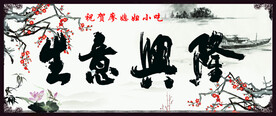 祝贺季媳妇小吃
生意興隆